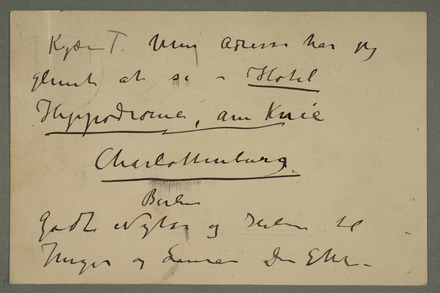 Kjære T. Min adresse har jeg
glemt at si – Hotel
Hippodrome, am Knie
Charlottenburg.
Berlin
Godt Nytår og Hilsen til
Inger og Din EM.